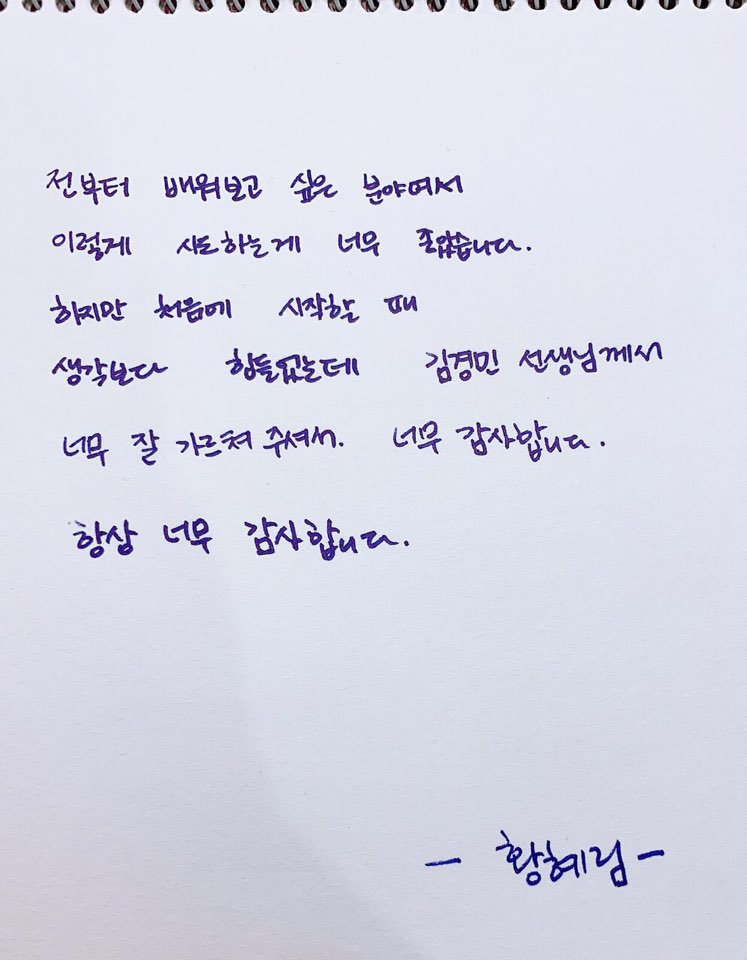 전부터 배워보고 싶은 분야여서
이렇게 시도하는게 너무 좋았습니다.
하지만 처음에 시작할 때
생각보다 힘들었는데 김경민 선생님께서
너무 잘 가르쳐 주셔서. 너무 감사합니다.
항상 너무 감사합니다.
- 황혜림 -